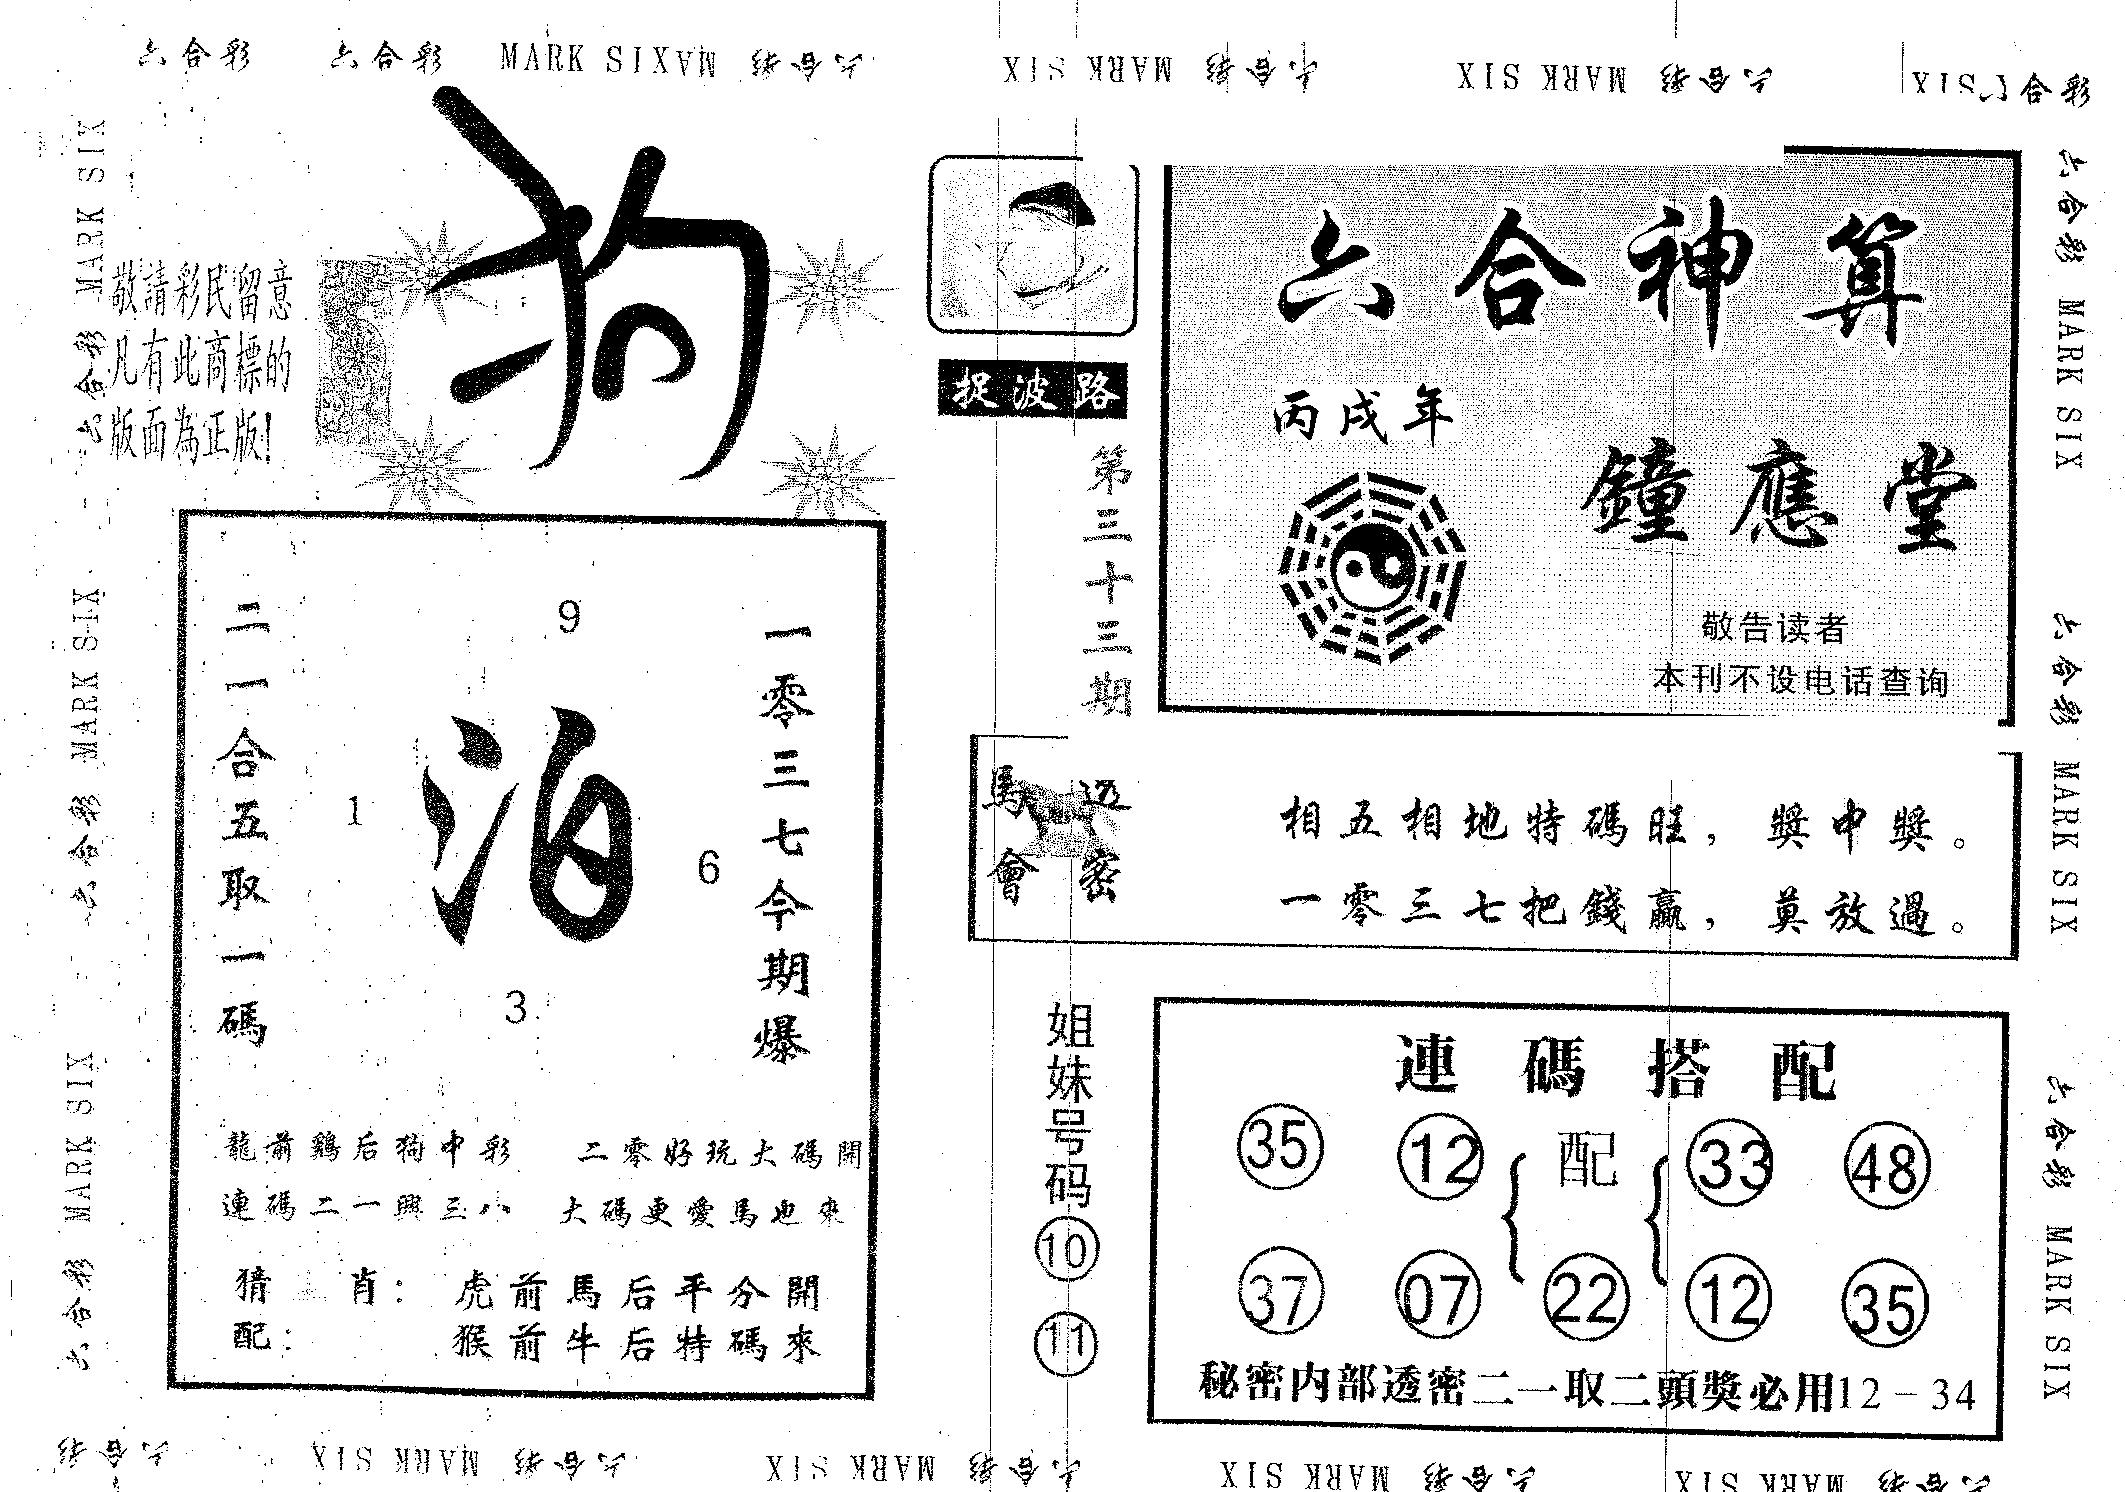 六合彩 六合彩 MARK SIX
六合彩 MARK SIX
六合彩 MARK SIX
六合彩 MARK SIX
六合彩
狗
敬請彩民留意
凡有此商標的
版面為正版!
捉波路
第三十三期
六合神算
丙戌年
鐘應堂
敬告读者
本刊不设电话查询
二一合五取一碼
9
1
泊
6
3
一零三七今期爆
龍前鷄后狗中彩 二零好玩大碼開
連碼二一興三八 大碼更愛馬也來
猜肖: 虎前馬后平分開
配: 猴前牛后特碼來
馬會透密
相五相地特碼旺，獎中獎。
一零三七把錢贏，莫放過。
姐妹号码
10
11
連碼搭配
35 12 配 33 48
37 07 22 12 35
秘密内部透密二一取二頭獎必用12－34
六合彩 MARK SIX
六合彩 MARK SIX
六合彩 MARK SIX
六合彩 MARK SIX
六合彩 MARK SIX
六合彩 MARK SIX
六合彩
MARK SIX 六合彩
MARK SIX 六合彩
MARK SIX 六合彩
MARK SIX 六合彩